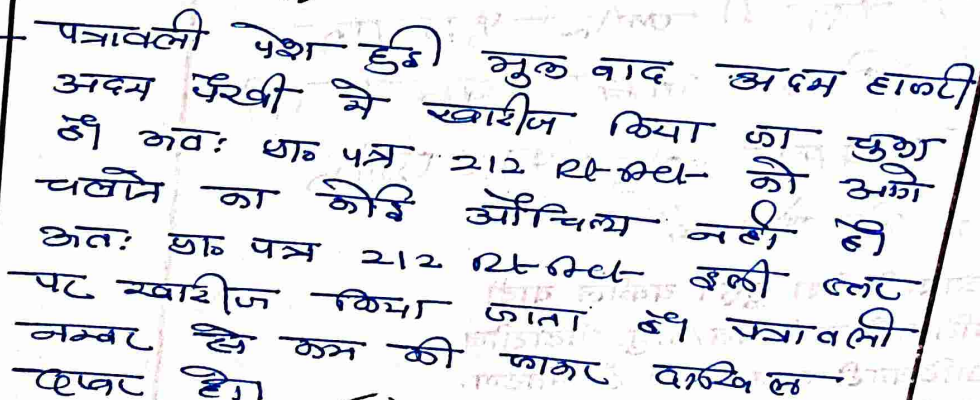 पत्रावली पेश हुई मुल वाद अदम हाजरी
अदम पैरवी मे खारीज किया जा चुका
है। अतः प्रा० पत्र 212 Rt Act को आगे
चलाने का कोई औचित्य नही है।
अतः प्रा० पत्र 212 Rt Act इसी स्तर
पर खारीज किया जाता है। पत्रावली
नम्बर से कम की जाकर दाखिल
दफ्तर हो।